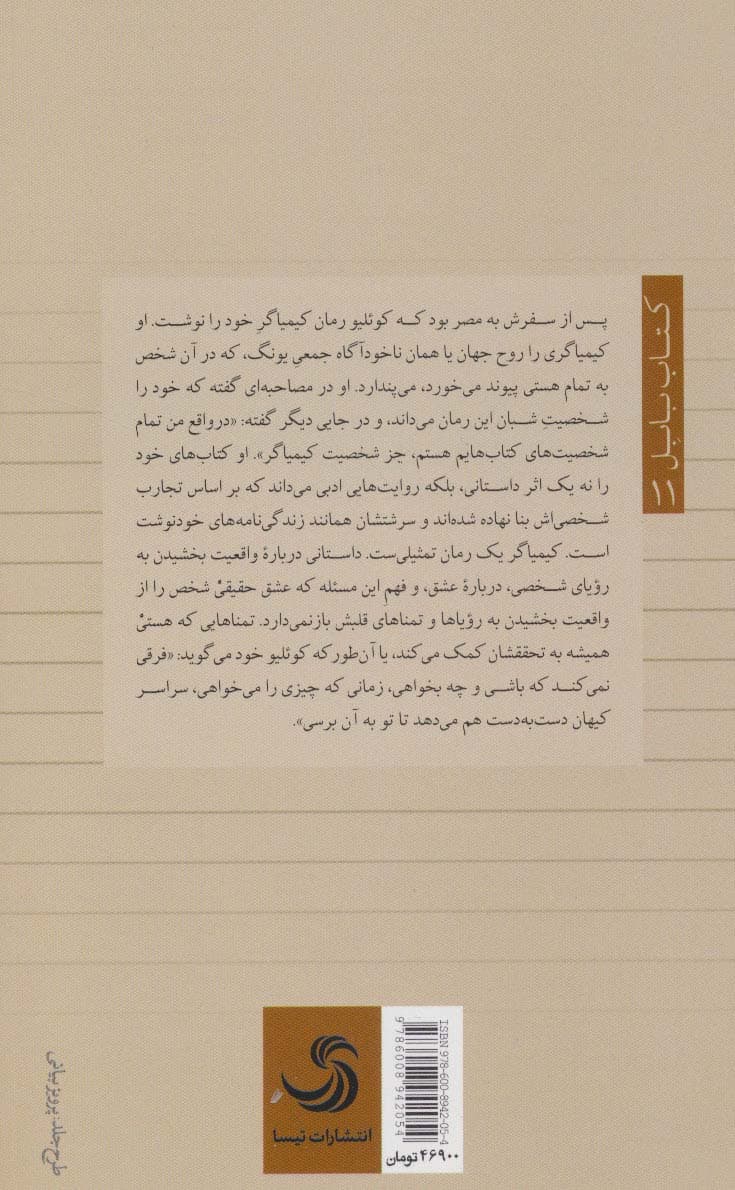 کتاب بابل
پس از سفرش به مصر بود که کوئلیو رمان کیمیاگرِ خود را نوشت. او
کیمیاگری را روح جهان یا همان ناخودآگاه جمعیِ یونگ، که در آن شخص
به تمام هستی پیوند می‌خورد، می‌پندارد. او در مصاحبه‌ای گفته که خود را
شخصیتِ شبان این رمان می‌داند، و در جایی دیگر گفته: «درواقع من تمام
شخصیت‌های کتاب‌هایم هستم، جز شخصیت کیمیاگر». او کتاب‌های خود
را نه یک اثر داستانی، بلکه روایت‌هایی ادبی می‌داند که بر اساس تجارب
شخصی‌اش بنا نهاده شده‌اند و سرشتشان همانند زندگی‌نامه‌های خودنوشت
است. کیمیاگر یک رمان تمثیلی‌ست. داستانی دربارهٔ واقعیت بخشیدن به
رؤیای شخصی، دربارهٔ عشق، و فهمِ این مسئله که عشق حقیقیْ شخص را از
واقعیت بخشیدن به رؤیاها و تمناهای قلبش بازنمی‌دارد. تمناهایی که هستیْ
همیشه به تحققشان کمک می‌کند، یا آن‌طورکه کوئلیو خود می‌گوید: «فرقی
نمی‌کند که باشی و چه بخواهی، زمانی که چیزی را می‌خواهی، سراسر
کیهان دست‌به‌دست هم می‌دهد تا تو به آن برسی».
انتشارات تیسا
ISBN 978-600-8942-05-4
9786008942054
۴۶۹۰۰ تومان
طرح جلد: پرویز بیانی